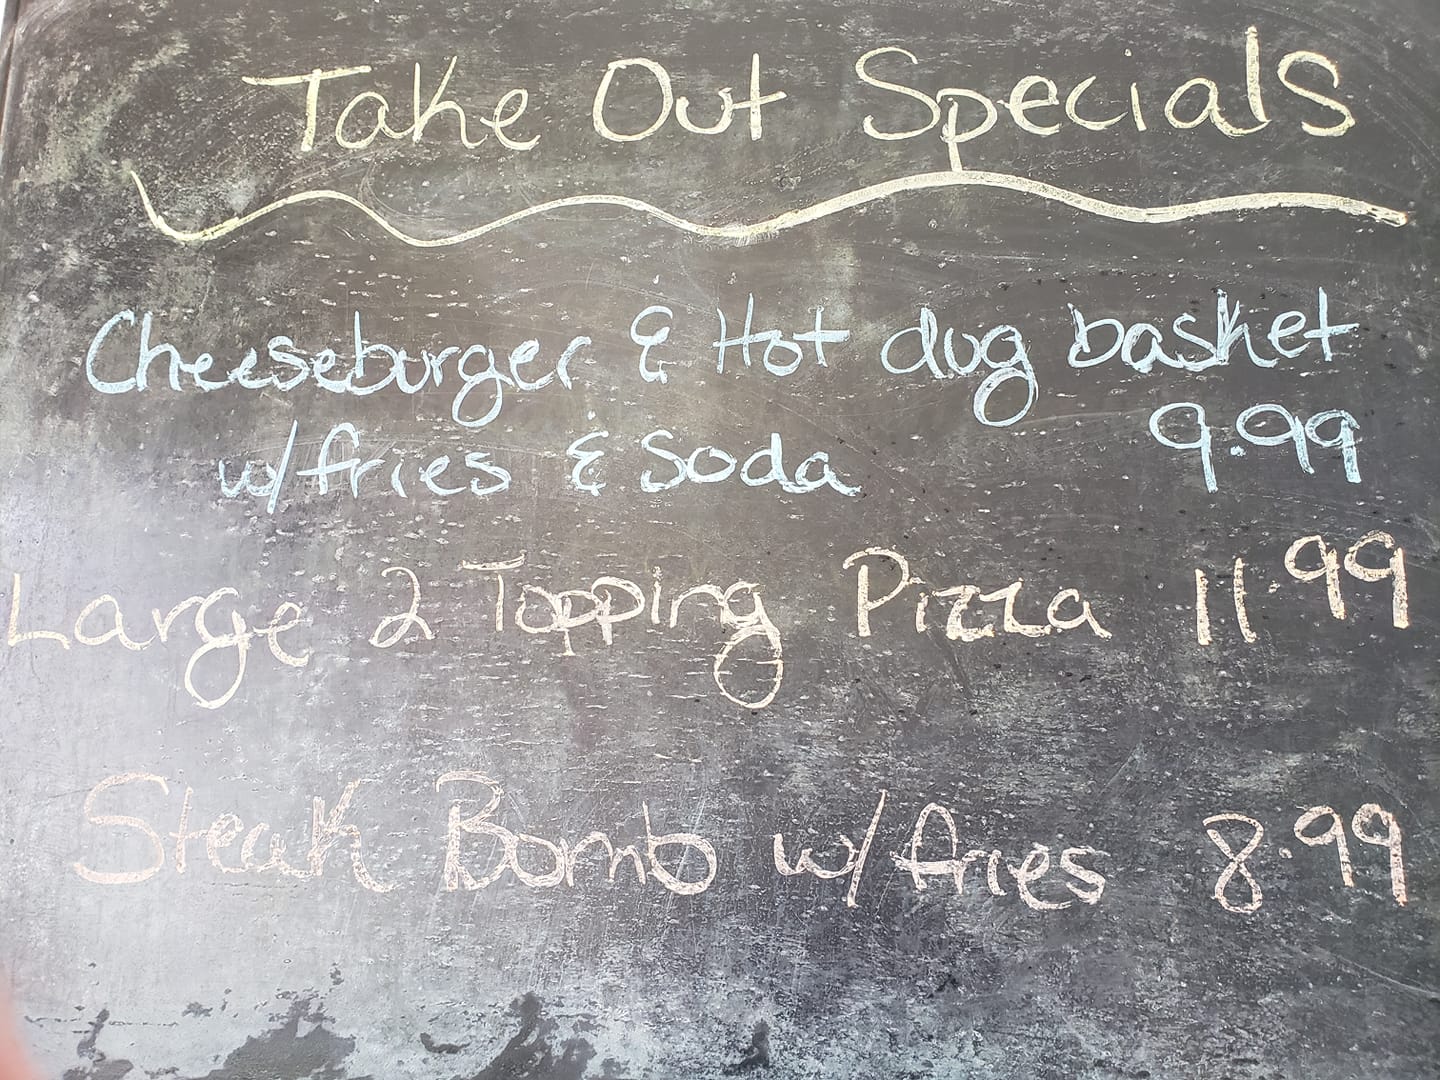 Take Out Specials
Cheeseburger & Hot dog basket
w/fries & Soda 9.99
Large 2 Topping Pizza 11.99
Steak Bomb w/fries 8.99